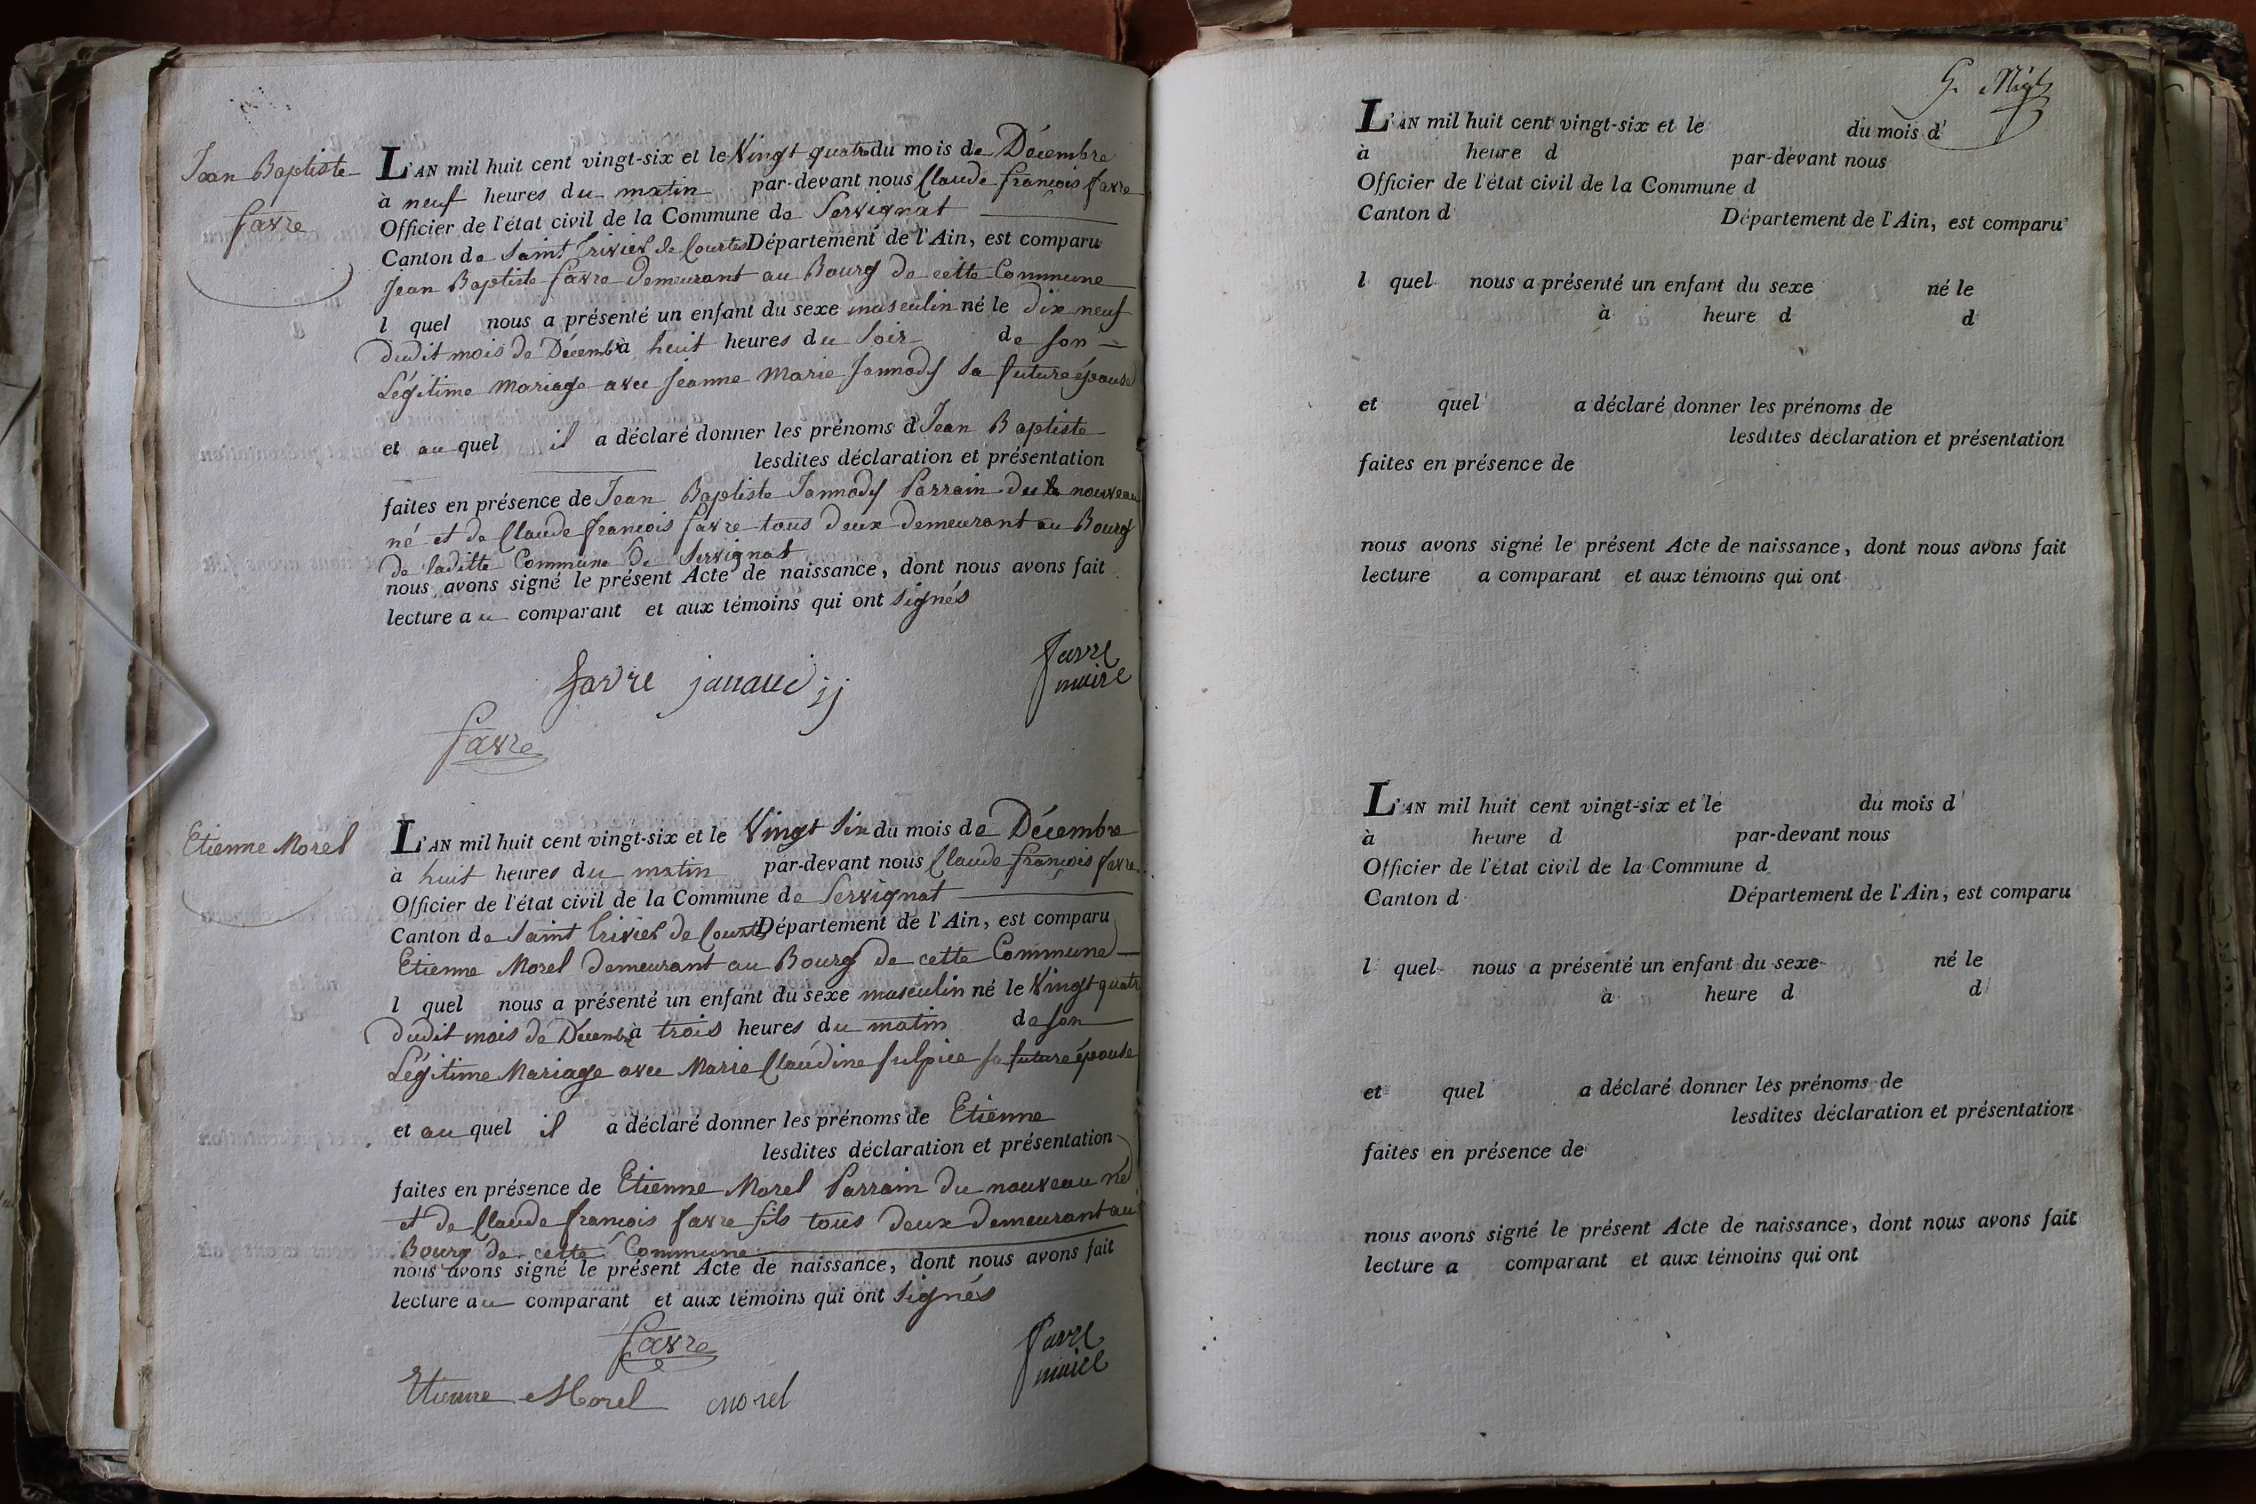 Jean Baptiste
favre
L'AN mil huit cent vingt-six et le Vingt quatre du mois de Décembre
à neuf heures du matin par-devant nous Claude françois favre
Officier de l'état civil de la Commune de Servignat
Canton de Saint Trivier de Courtes Département de l'Ain, est comparu
Jean Baptiste favre demeurant au Bourg de cette Commune
l quel nous a présenté un enfant du sexe masculin né le dix neuf
dudit mois de Décemb à huit heures du Soir de son
Légitime Mariage avec Jeanne Marie Jannody sa future épouse
et au quel il a déclaré donner les prénoms d Jean Baptiste
lesdites déclaration et présentation
faites en présence de Jean Baptiste Jannody Parrain du nouveau
né et de Claude françois favre tous deux demeurant au Bourg
de laditte Commune de Servignat
nous avons signé le présent Acte de naissance, dont nous avons fait
lecture au comparant et aux témoins qui ont signés
favre
favre
maire
favre
Etienne Morel
L'AN mil huit cent vingt-six et le Vingt Six du mois de Décembre
à huit heures du matin par-devant nous Claude françois favre
Officier de l'état civil de la Commune de Servignat
Canton de Saint Trivier de Courtes Département de l'Ain, est comparu
Etienne Morel demeurant au Bourg de cette Commune
l quel nous a présenté un enfant du sexe masculin né le Vingt quatre
dudit mois de Décemb à trois heures du matin de son
Légitime Mariage avec Marie Claudine Sulpice sa future épouse
et au quel il a déclaré donner les prénoms de Etienne
lesdites déclaration et présentation
faites en présence de Etienne Morel Parrain du nouveau né
et de Claude françois favre fils tous deux demeurant au
Bourg de cette Commune
nous avons signé le présent Acte de naissance, dont nous avons fait
lecture au comparant et aux témoins qui ont signés
favre
favre
maire
Etienne Morel morel
L'AN mil huit cent vingt-six et le du mois d
à heure d par-devant nous
Officier de l'état civil de la Commune d
Canton d Département de l'Ain, est comparu
l quel nous a présenté un enfant du sexe né le
à heure d d
et quel a déclaré donner les prénoms de
lesdites déclaration et présentation
faites en présence de
nous avons signé le présent Acte de naissance, dont nous avons fait
lecture a comparant et aux témoins qui ont
L'AN mil huit cent vingt-six et le du mois d
à heure d par-devant nous
Officier de l'état civil de la Commune d
Canton d Département de l'Ain, est comparu
l quel nous a présenté un enfant du sexe né le
à heure d d
et quel a déclaré donner les prénoms de
lesdites déclaration et présentation
faites en présence de
nous avons signé le présent Acte de naissance, dont nous avons fait
lecture a comparant et aux témoins qui ont